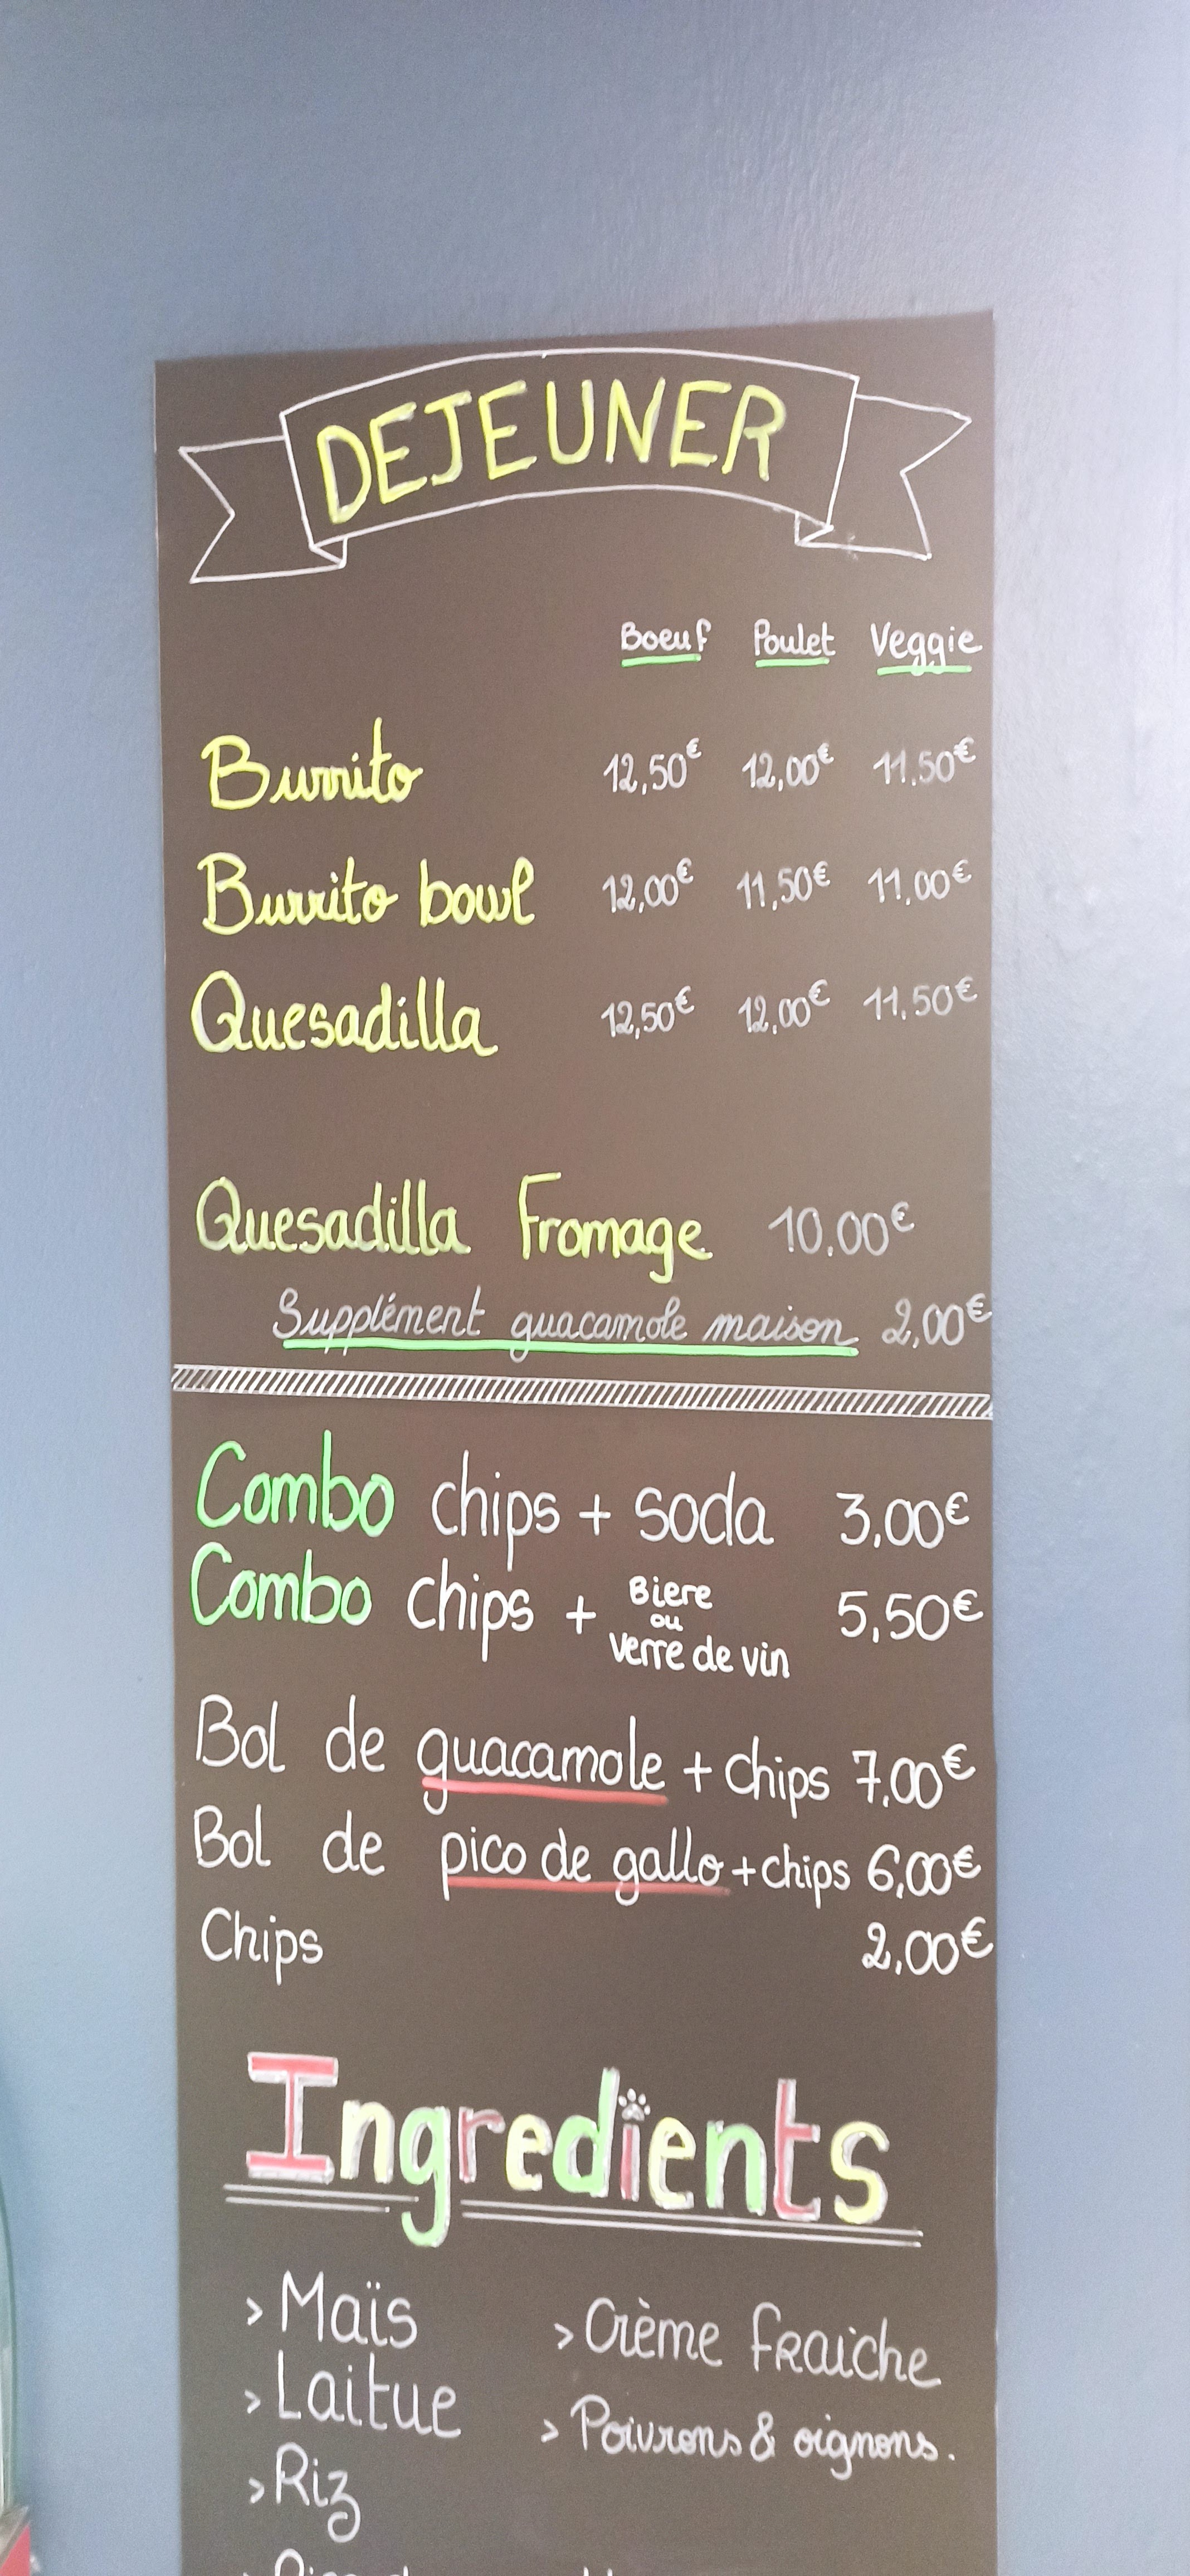 DEJEUNER
Boeuf Poulet Veggie
Burrito 12,50€ 12,00€ 11.50€
Burrito bowl 12,00€ 11,50€ 11.00€
Quesadilla 12,50€ 12,00€ 11.50€
Quesadilla Fromage 10.00€
Supplément guacamole maison 2,00€
Combo chips + soda 3,00€
Combo chips + Biere ou verre de vin 5,50€
Bol de guacamole + chips 7,00€
Bol de pico de gallo + chips 6,00€
Chips 2,00€
Ingredients
> Maïs
> Laitue
> Riz
> Crème fraiche
> Poivrons & oignons.